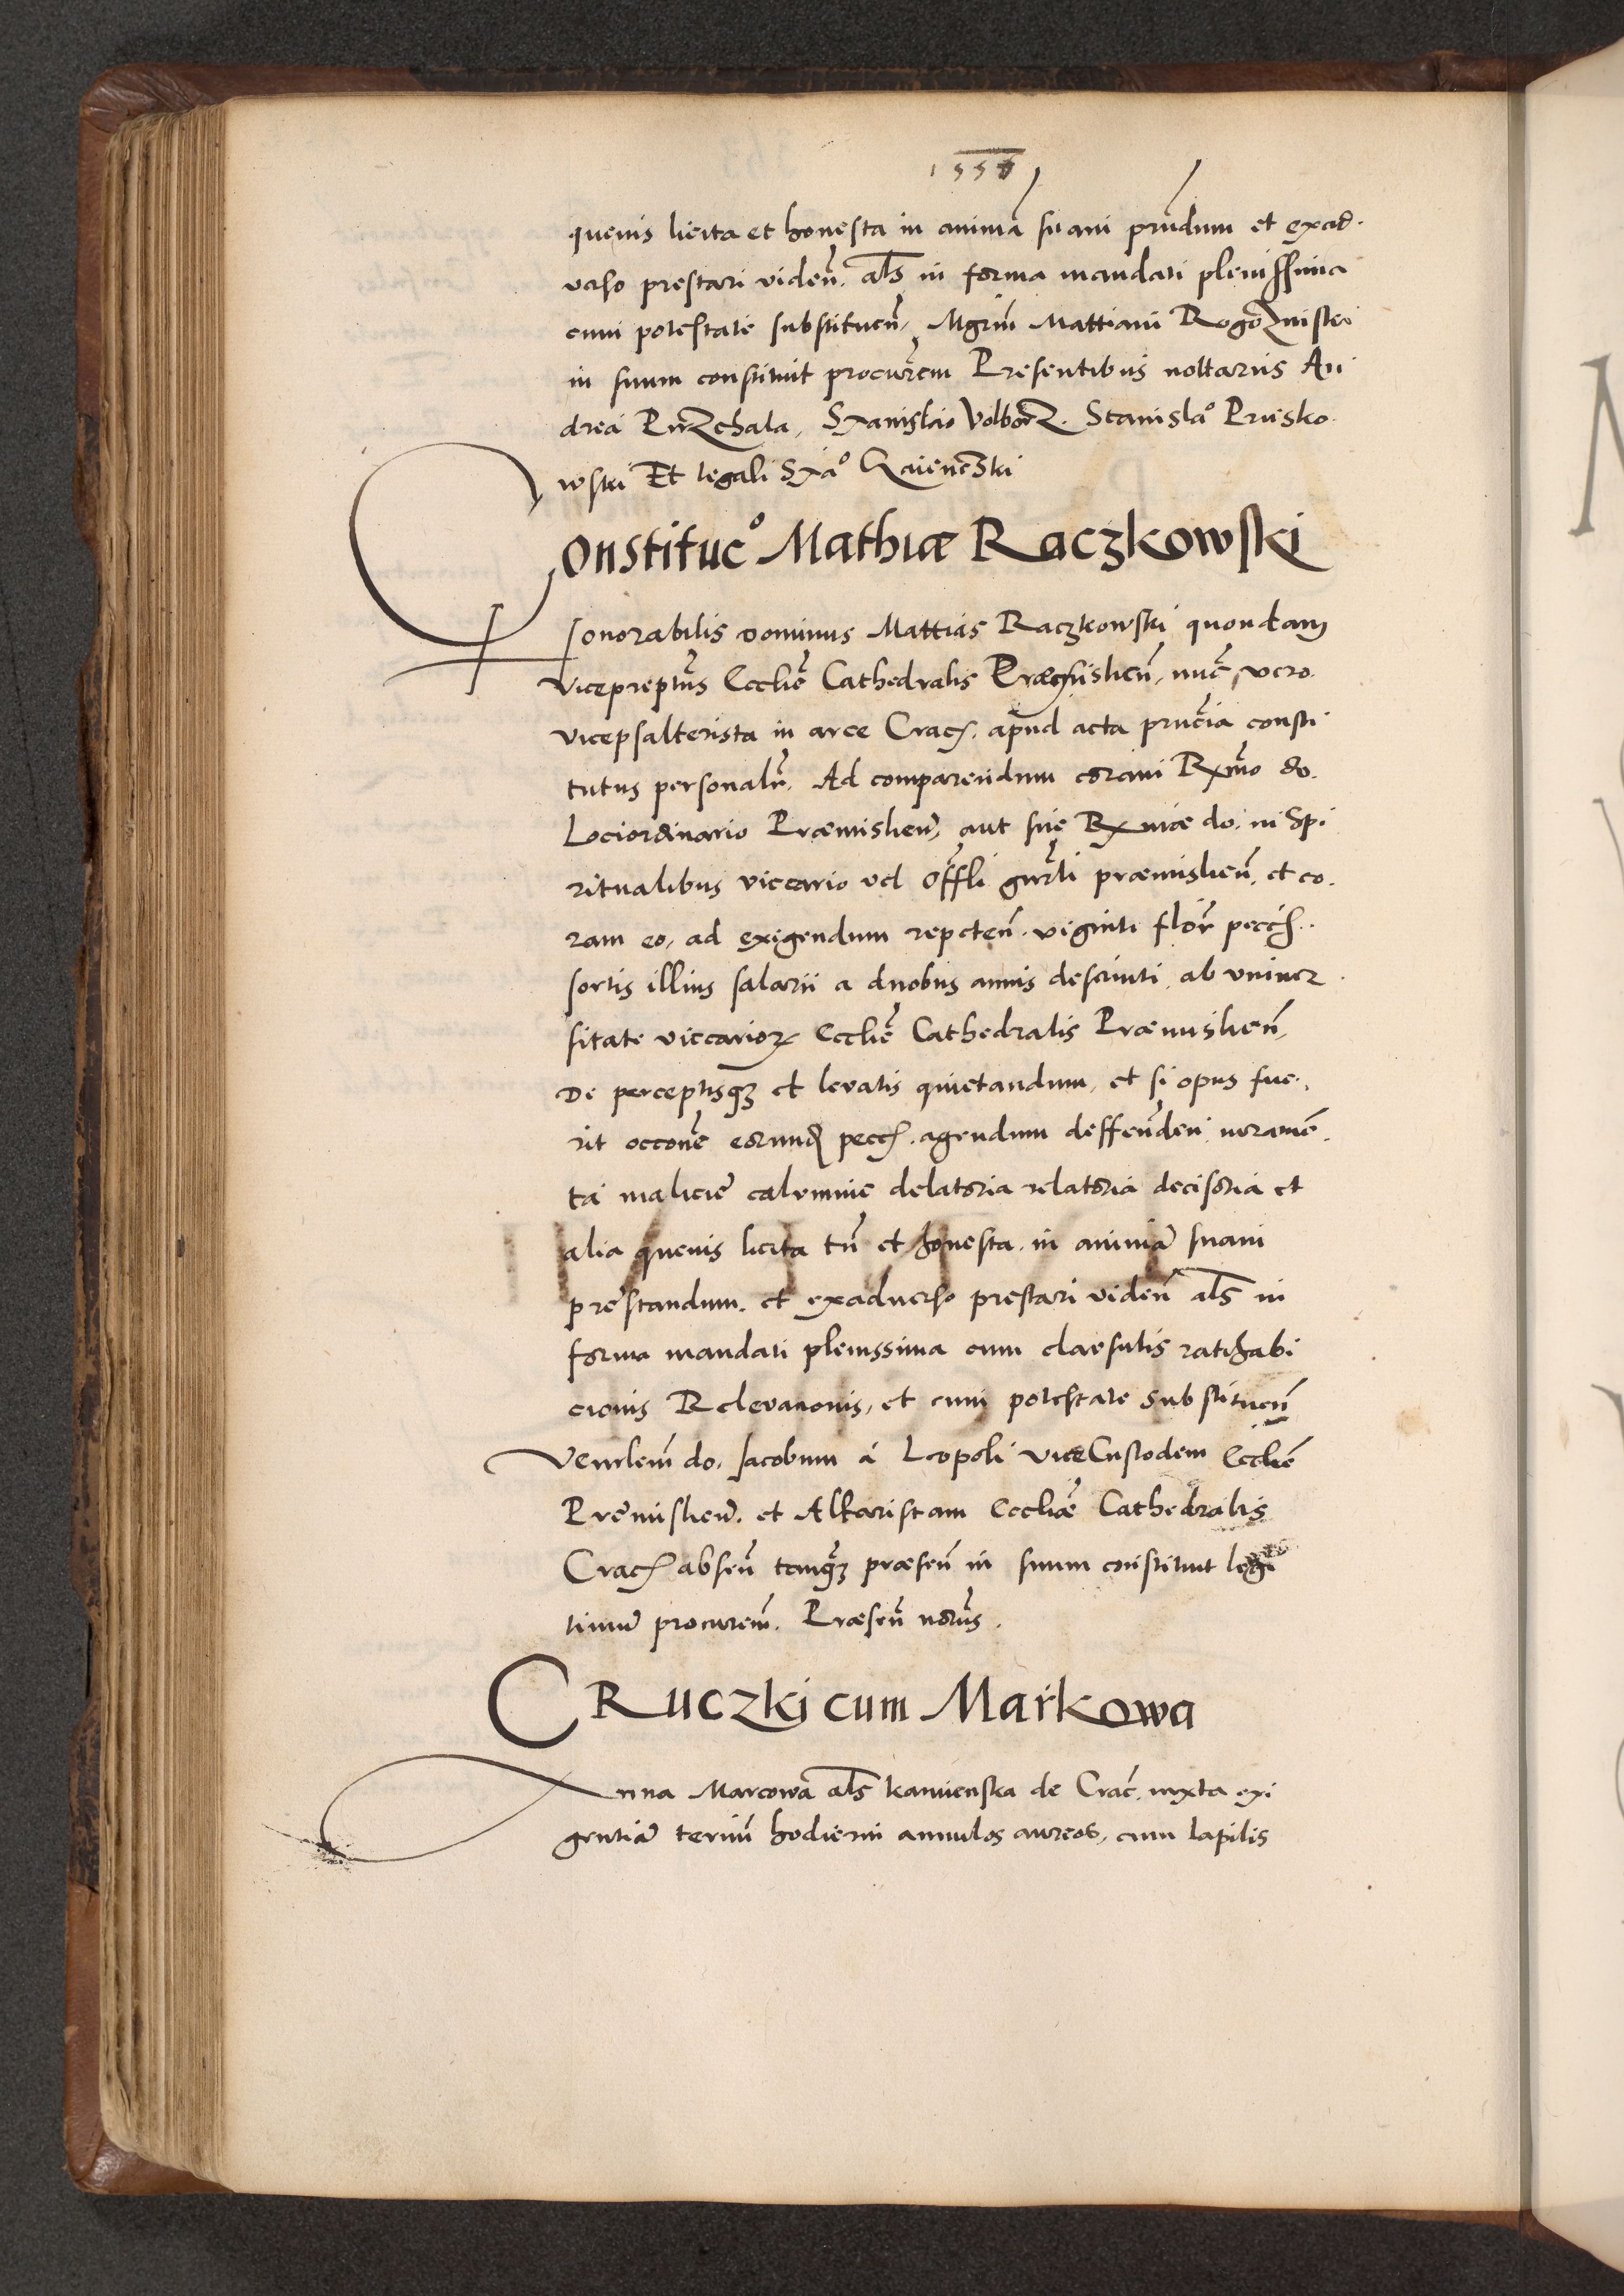 1556
quevis licita et honesta in animā suam prn̄dum et exad.
verso prestari viden̄. al̄s in forma mandati plenissima
cum potestate substituen̄, Mgrm̄ Mattiam Rogozniski
in suum constituit procurem Presentibus nottariis An
drea Przechala, Stanislao Volborz. Stanislao Prusko.
wski Et legali
Constituc° Mathiæ Raczkowski
Honorabilis dominus Mattias Raczkowski quondam
viceprept̄us Ecclie Cathedralis Præmislien̄, nūc vero.
vicepsalterista in arce Crac. apud acta pn̄cia consti
tutus personalr̄. Ad comparendum coram Rx̄mo do.
Lociordinario Præmislien̄, aut sue Rxmæ do. in Spi
ritualibus viccario vel off̄li gnrl̄i præmislien̄. et co.
ram eo, ad exigendum repeten̄. viginti flor̄ pecc.
sortis illius salarii a duobus annis deserviti, ab univer
sitate viccarioꝝ Ecclie Cathedralis Præmislien̄,
De perceptisqꝫ et levatis quietandum, et si opus fue.
rit occone eorund pecc. agendum deffenden iuramē.
ta malicie calumnie delatoria relatoria decisoria et
alia quevis licita tn̄ et honesta. in animā suam
prestandum. et exadverso prestari viden̄ al̄s in
forma mandati plenissima cum clausulis ratihabi
cionis Relevationis, et cum potestate substituen̄
Venrlem̄ do. Jacobum a Leopoli viceCustodem Ecclie
Premislien̄. et Altaristam Eccliæ Cathedralis
Crac absen̄ tanqꝫ præsen̄ in suum constituit legi
timū procurem̄. Præsen̄ nor̄us.
CRuczki cum Markowa
Anna Marcowa al̄s kamienska de Crac. iuxta exi
gentiā termi hodierni annulos aureos, cum lapilis